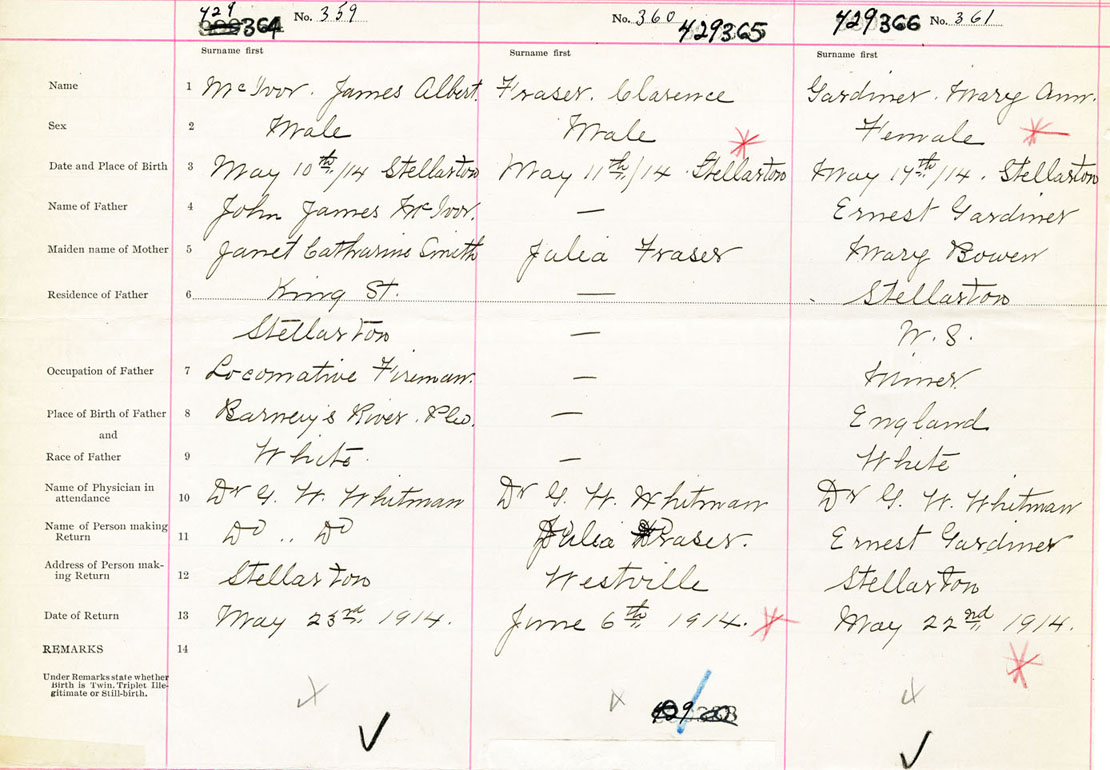 429 364 No. 359 No. 360 429365 429366 No. 361
Surname first Surname first Surname first
Name 1 McIvor. James Albert. Fraser. Clarence Gardiner. Mary Ann.
Sex 2 Male Male Female
Date and Place of Birth 3 May 10th/14 Stellarton May 11th/14 Stellarton May 17th/14. Stellarton
Name of Father 4 John James McIvor. — Ernest Gardiner
Maiden name of Mother 5 Janet Catharine Smith Julia Fraser Mary Bowen
Residence of Father 6 King St. — Stellarton
Stellarton —
Occupation of Father 7 Locomative Fireman. — Miner
Place of Birth of Father 8 Barney's River. — England
and
Race of Father 9 White. — White
Name of Physician in
attendance 10 Dr G. W. Whitman Dr G. W. Whitman Dr G. W. Whitman
Name of Person making
Return 11 Do .. Do Julia Fraser. Ernest Gardiner
Address of Person mak-
ing Return 12 Stellarton Westville Stellarton
Date of Return 13 May 23rd 1914. June 6th 1914. May 22nd 1914.
REMARKS 14
Under Remarks state whether
Birth is Twin, Triplet Ille-
gitimate or Still-birth.
429